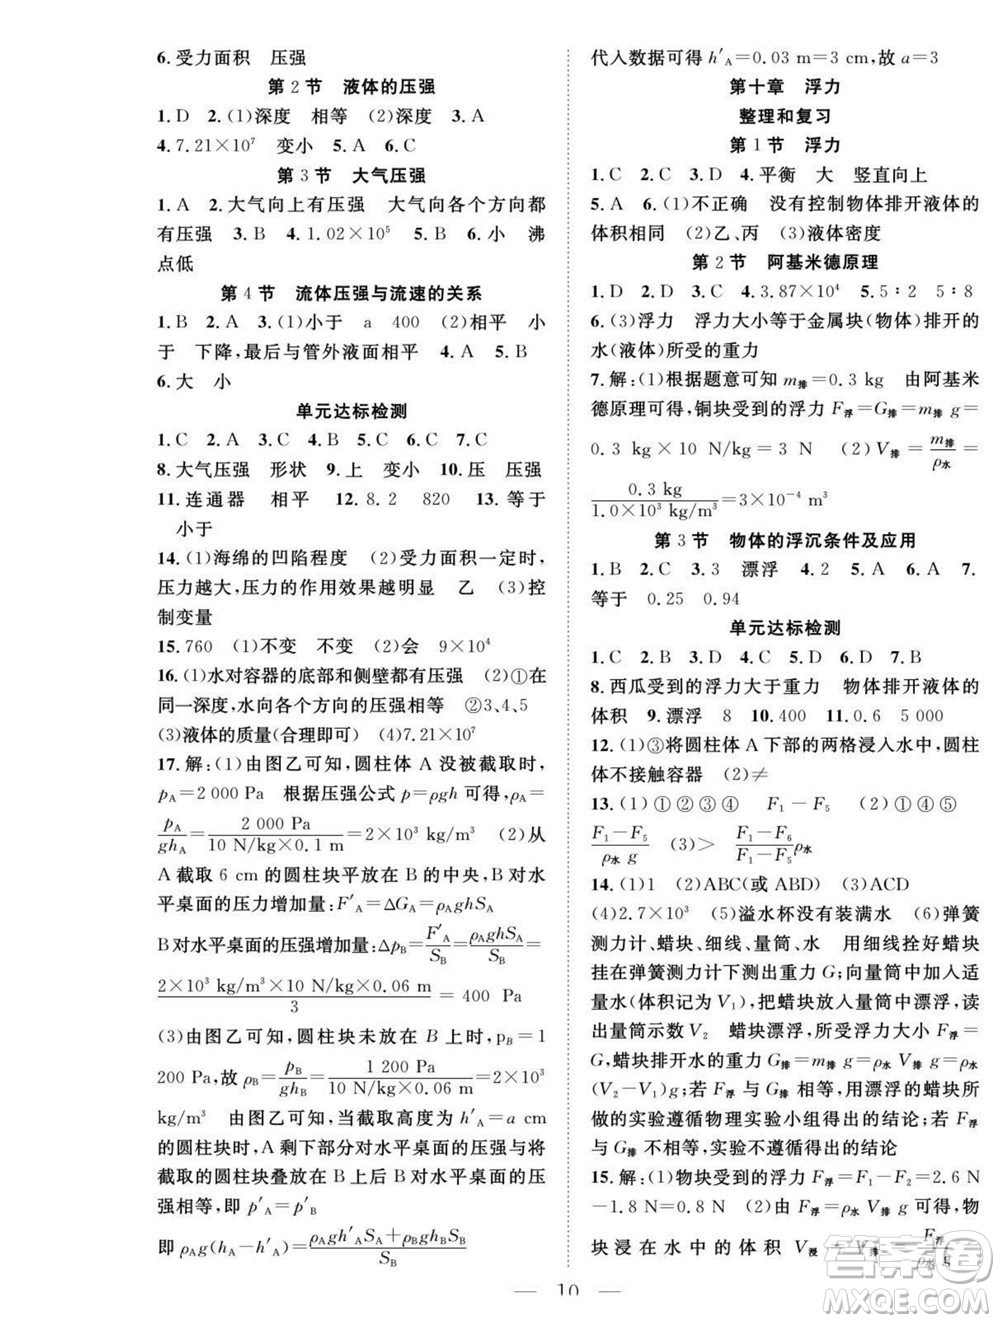 6. 受力面积　压强
第 2 节　液体的压强
1. D　2. (1)深度　相等　(2)深度　3. A
4. 7.21×10⁷　变小　5. A　6. C
第 3 节　大气压强
1. A　2. 大气向上有压强　大气向各个方向都
有压强　3. B　4. 1.02×10⁵　5. B　6. 小　沸
点低
第 4 节　流体压强与流速的关系
1. B　2. A　3. (1)小于　a　400　(2)相平　小
于　下降,最后与管外液面相平　4. A　5. B
6. 大　小
单元达标检测
1. C　2. A　3. B　4. B　5. C　6. C　7. C
8. 大气压强　形状　9. 上　变小　10. 压　压强
11. 连通器　相平　12. 8.2　820　13. 等于
小于
14. (1)海绵的凹陷程度　(2)受力面积一定时,
压力越大,压力的作用效果越明显　乙　(3)控
制变量
15. 760　(1)不变　不变　(2)会　9×10⁴
16. (1)水对容器的底部和侧壁都有压强　(2)①在
同一深度,水向各个方向的压强相等　②3、4、5
(3)液体的质量(合理即可)　(4)7.21×10⁷
17. 解:(1)由图乙可知,圆柱体 A 没被截取时,
p_A=2 000 Pa　根据压强公式 p=ρgh 可得,ρ_A=
p_A/gh_A=2 000 Pa/(10 N/kg×0.1 m)=2×10³ kg/m³　(2)从
A 截取 6 cm 的圆柱块平放在 B 的中央,B 对水
平桌面的压力增加量:F′_A=ΔG_A=ρ_A ghS_A
B 对水平桌面的压强增加量:Δp_B=F′_A/S_B=ρ_A ghS_A/S_B=
(2×10³ kg/m³×10 N/kg×0.06 m)/3=400 Pa
(3)由图乙可知,圆柱块未放在 B 上时,p_B=1
200 Pa,故 ρ_B=p_B/gh_B=1 200 Pa/(10 N/kg×0.06 m)=2×10³
kg/m³　由图乙可知,当截取高度为 h′_A=a cm
的圆柱块时,A 剩下部分对水平桌面的压强与将
截取的圆柱块叠放在 B 上时 B 对水平桌面的压
强相等,即 p′_A=p′_B
即 ρ_A g(h_A−h′_A)=(ρ_A gh′_A S_A+ρ_B gh_B S_B)/S_B
代入数据可得 h′_A=0.03 m=3 cm,故 a=3
第十章　浮力
整理和复习
第 1 节　浮力
1. C　2. C　3. D　4. 平衡　大　竖直向上
5. A　6. (1)不正确　没有控制物体排开液体的
体积相同　(2)乙、丙　(3)液体密度
第 2 节　阿基米德原理
1. D　2. D　3. C　4. 3.87×10⁴　5. 5∶2　5∶8
6. (3)浮力　浮力大小等于金属块(物体)排开的
水(液体)所受的重力
7. 解:(1)根据题意可知 m排=0.3 kg　由阿基米
德原理可得,铜块受到的浮力 F浮=G排=m排 g=
0.3 kg×10 N/kg=3 N　(2)V排=m排/ρ水=
0.3 kg/(1.0×10³ kg/m³)=3×10⁻⁴ m³
第 3 节　物体的浮沉条件及应用
1. B　2. C　3. 3　漂浮　4. 2　5. A　6. A　7.
等于　0.25　0.94
单元达标检测
1. C　2. B　3. D　4. D　5. B　6. A　7. C
8. 西瓜受到的浮力大于重力　物体排开液体的
体积　9. 漂浮　8　10. 400　11. 0.6　5 000
12. (1)③将圆柱体 A 下部的两格浸入水中,圆柱
体不接触容器　(2)≠
13. (1)①②③④　F₁−F₅　(2)①④⑤
(F₁−F₅)/(ρ水 g)　(3)>　(F₁−F₆)/(F₁−F₅)ρ水
14. (1)1　(2)ABC(或 ABD)　(3)ACD
(4)2.7×10³　(5)溢水杯没有装满水　(6)弹簧
测力计、蜡块、细线、量筒、水　用细线拴好蜡块
挂在弹簧测力计下测出重力 G;量筒中加入适
量水(体积记为 V₁),把蜡块放入量筒中漂浮,读
出量筒示数 V₂　蜡块漂浮,所受浮力大小 F浮=
G,蜡块排开水的重力 G排=m排 g=ρ水 V排 g=ρ水
(V₂−V₁)g;若 F浮 与 G排 相等,用漂浮的蜡块所
做的实验遵循物理实验小组得出的结论;若 F浮
与 G排 不相等,实验不遵循得出的结论
15. 解:(1)物块受到的浮力 F浮=F₁−F₂=2.6 N
−1.8 N=0.8 N　(2)由 F浮=ρ水 V排 g 可得,物
块浸在水中的体积 V浸=V排=F浮/(ρ水 g)=
— 10 —
答案圈
MXQE.COM